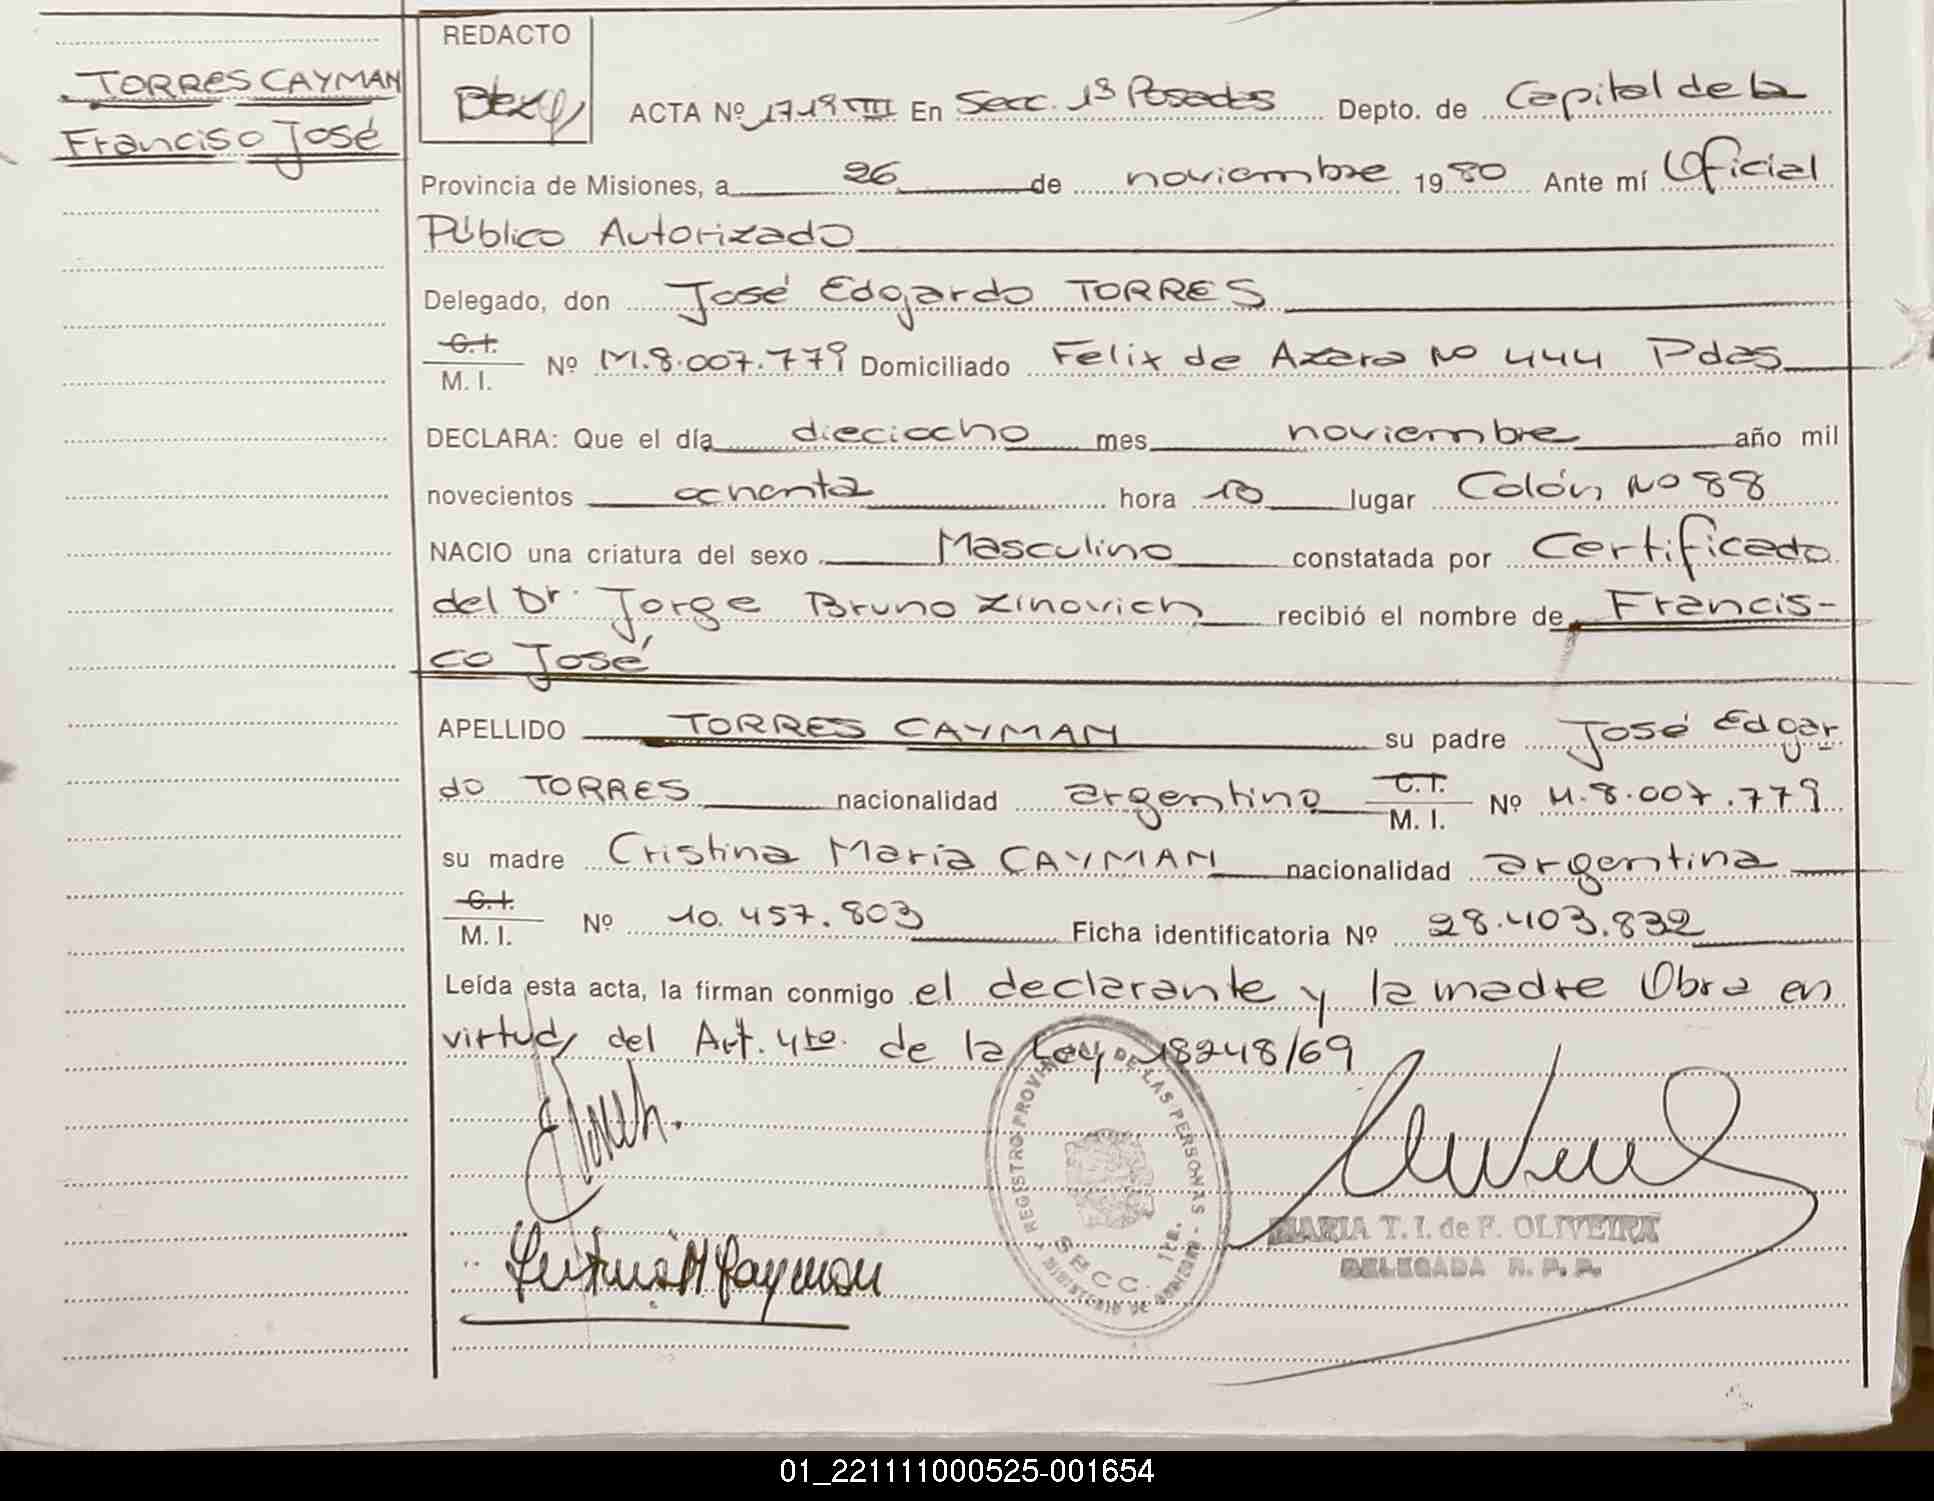 TORRES CAYMAN
Franciso José
REDACTO
ACTA Nº 1719 VIII En Secc. 1ª Posadas Depto. de Capital de la
Provincia de Misiones, a 26 de noviembre 1980 Ante mí Oficial
Público Autorizado
Delegado, don José Edgardo TORRES
C.I.
M. I. Nº M.8.007.779 Domiciliado Felix de Azara Nº 444 Pdas
DECLARA: Que el día dieciocho mes noviembre año mil
novecientos ochenta hora 10 lugar Colón Nº 88
NACIO una criatura del sexo Masculino constatada por Certificado
del Dr. Jorge Bruno Zinovich recibió el nombre de Francis-
co José
APELLIDO TORRES CAYMAN su padre José Edgar
do TORRES nacionalidad argentino C.I. M. I. Nº M.8.007.779
su madre Cristina María CAYMAN nacionalidad argentina
C.I.
M. I. Nº 10.457.803 Ficha identificatoria Nº 28.403.832
Leída esta acta, la firman conmigo el declarante y la madre Obra en
virtud del Art. 4to. de la Ley 18248/69
REGISTRO PROVINCIAL DE LAS PERSONAS
SECC. 1ra.
MINISTERIO DE GOBIERNO
MARIA T. I. de F. OLIVEIRA
DELEGADA R. P. P.
01_221111000525-001654